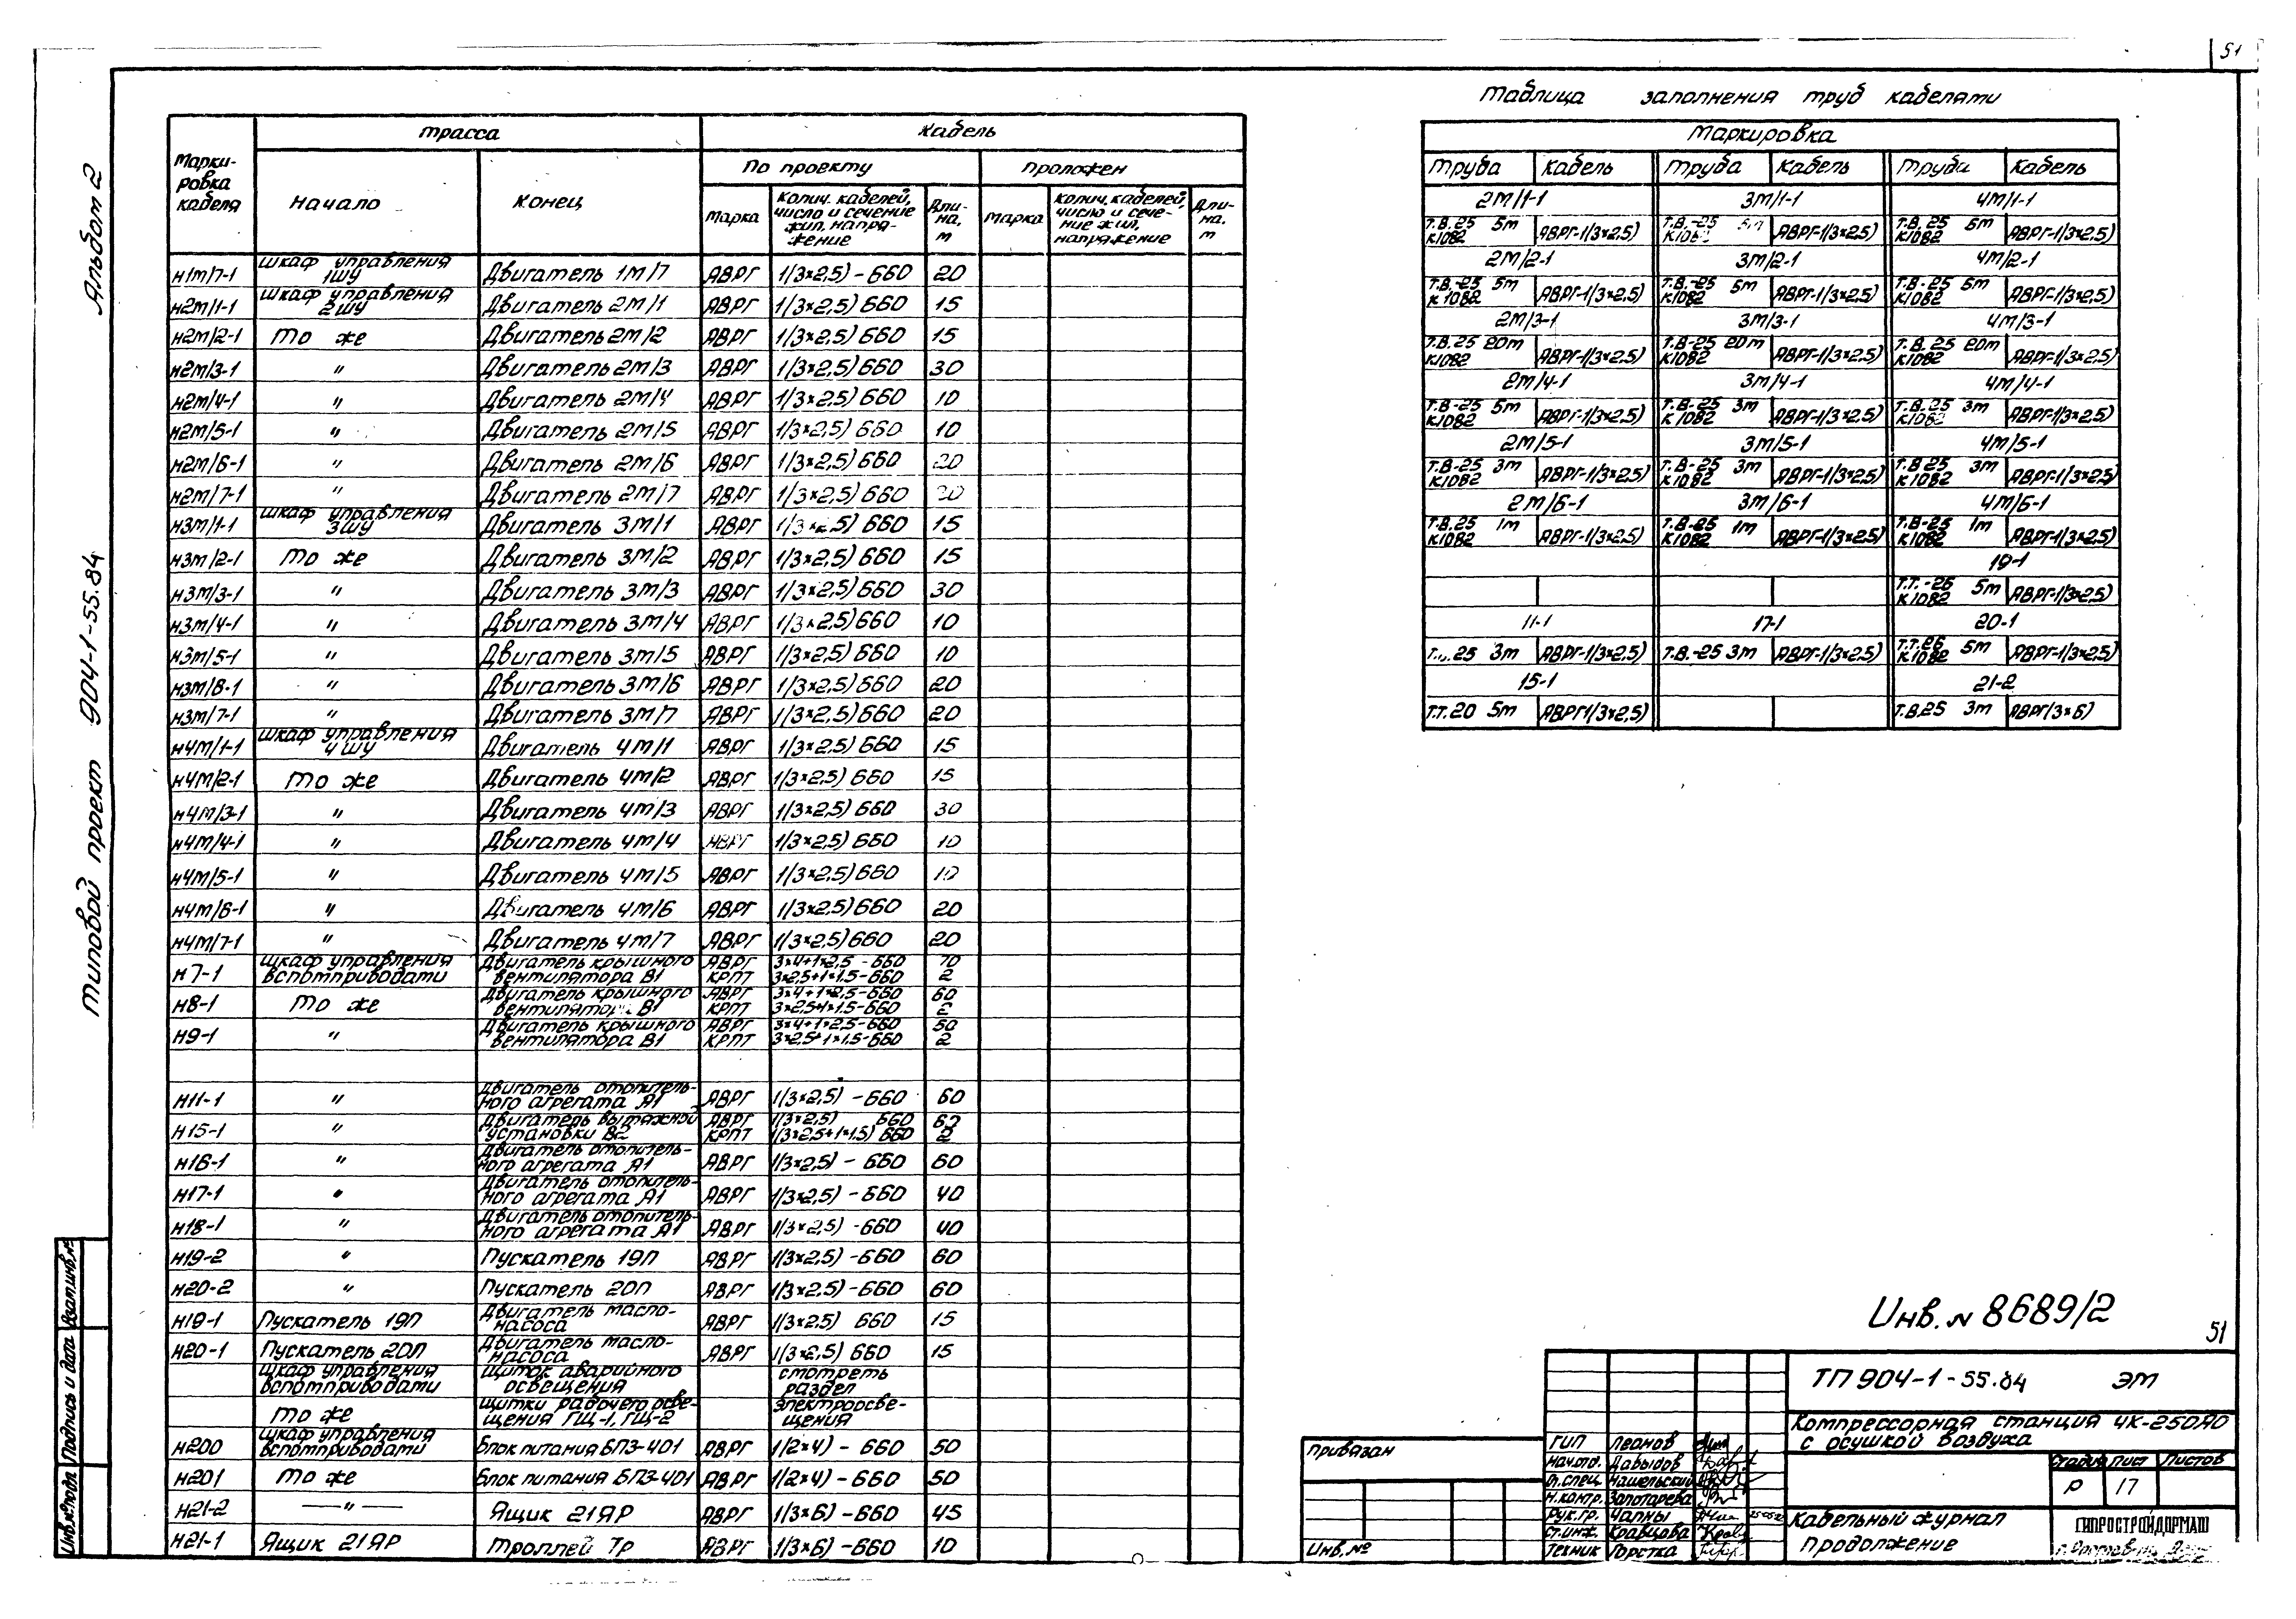 51
Альбом 2
Типовой проект 904-1-55.84
Марки-
ровка
кабеля
Трасса
Кабель
Начало
Конец
По проекту
Проложен
Марка
Колич. кабелей,
число и сечение
жил, напря-
жение
Дли-
на,
м
Марка
Колич. кабелей,
число и сече-
ние жил,
напряжение
Дли-
на,
м
Н1М/7-1 Шкаф управления 1ШУ Двигатель 1М/7 АВРГ 1/3×2,5) - 660 20
Н2М/1-1 Шкаф управления 2ШУ Двигатель 2М/1 АВРГ 1/3×2,5) 660 15
Н2М/2-1 То же Двигатель 2М/2 АВРГ 1/3×2,5) 660 15
Н2М/3-1 " Двигатель 2М/3 АВРГ 1/3×2,5) 660 30
Н2М/4-1 " Двигатель 2М/4 АВРГ 1/3×2,5) 660 10
Н2М/5-1 " Двигатель 2М/5 АВРГ 1/3×2,5) 660 10
Н2М/6-1 " Двигатель 2М/6 АВРГ 1/3×2,5) 660 20
Н2М/7-1 " Двигатель 2М/7 АВРГ 1/3×2,5) 660
Н3М/1-1 Шкаф управления 3ШУ Двигатель 3М/1 АВРГ 1/3×2,5) 660 15
Н3М/2-1 То же Двигатель 3М/2 АВРГ 1/3×2,5) 660 15
Н3М/3-1 " Двигатель 3М/3 АВРГ 1/3×2,5) 660 30
Н3М/4-1 " Двигатель 3М/4 АВРГ 1/3×2,5) 660 10
Н3М/5-1 " Двигатель 3М/5 АВРГ 1/3×2,5) 660 10
Н3М/6-1 " Двигатель 3М/6 АВРГ 1/3×2,5) 660 20
Н3М/7-1 " Двигатель 3М/7 АВРГ 1/3×2,5) 660 20
Н4М/1-1 Шкаф управления 4ШУ Двигатель 4М/1 АВРГ 1/3×2,5) 660 15
Н4М/2-1 То же Двигатель 4М/2 АВРГ 1/3×2,5) 660 15
Н4М/3-1 " Двигатель 4М/3 АВРГ 1/3×2,5) 660 30
Н4М/4-1 " Двигатель 4М/4 АВРГ 1/3×2,5) 660 10
Н4М/5-1 " Двигатель 4М/5 АВРГ 1/3×2,5) 660 10
Н4М/6-1 " Двигатель 4М/6 АВРГ 1/3×2,5) 660 20
Н4М/7-1 " Двигатель 4М/7 АВРГ 1/3×2,5) 660 20
Н7-1 Шкаф управления Двигатель крышного АВРГ 3×4+1×2,5 - 660 70
вспомприводами вентилятора В1 КРПТ 3×2,5+1×1,5-660 2
Н8-1 То же Двигатель крышного АВРГ 3×4+1×2,5-660 60
вентилятора В1 КРПТ 3×2,5+1×1,5-660 2
Н9-1 " Двигатель крышного АВРГ 3×4+1×2,5-660 50
вентилятора В1 КРПТ 3×2,5+1×1,5-660 2
Н11-1 " Двигатель отопитель-
ного агрегата А1 АВРГ 1/3×2,5) - 660 60
Н15-1 " Двигатель вытяжной АВРГ 1/3×2,5) 660
установки В2 КРПТ 1/3×2,5+1×1,5) 660 2
Н16-1 " Двигатель отопитель-
ного агрегата А1 АВРГ 1/3×2,5) - 660 60
Н17-1 " Двигатель отопитель-
ного агрегата А1 АВРГ 1/3×2,5) - 660 40
Н18-1 " Двигатель отопитель-
ного агрегата А1 АВРГ 1/3×2,5) -660 40
Н19-2 " Пускатель 19П АВРГ 1/3×2,5) -660 60
Н20-2 " Пускатель 20П АВРГ 1/3×2,5) -660 60
Н19-1 Пускатель 19П Двигатель масло-
насоса АВРГ 1/3×2,5) 660 15
Н20-1 Пускатель 20П Двигатель масло-
насоса АВРГ 1/3×2,5) 660 15
Шкаф управления Щиток аварийного смотреть
вспомприводами освещения раздел
То же Щитки рабочего осве- электроосве-
щения ГЩ-1, ГЩ-2 щения
Н200 Шкаф управления вспомприводами Блок питания БПЗ-401 АВРГ 1/2×4) - 660 50
Н201 То же Блок питания БПЗ-401 АВРГ 1/2×4) - 660 50
Н21-2 — " — Ящик 21ЯР АВРГ 1/3×6) -660 45
Н21-1 Ящик 21ЯР Троллей Тр АВРГ 1/3×6) -660 10
Таблица заполнения труб кабелями
Маркировка
Труба Кабель Труба Кабель Труба Кабель
2М/1-1 3М/1-1 4М/1-1
Т.В.25 5м К1082 АВРГ-1/3×2,5) Т.В.-25 5м К1082 АВРГ-1/3×2,5) Т.В.25 5м К1082 АВРГ-1/3×2,5)
2М/2-1 3М/2-1 4М/2-1
Т.В.-25 5м К1082 АВРГ-1/3×2,5) Т.В.-25 5м К1082 АВРГ-1/3×2,5) Т.В.-25 5м К1082 АВРГ-1/3×2,5)
2М/3-1 3М/3-1 4М/3-1
Т.В.25 20м К1082 АВРГ-1/3×2,5) Т.В-25 20м К1082 АВРГ-1/3×2,5) Т.В.25 20м К1082 АВРГ-1/3×2,5)
2М/4-1 3М/4-1 4М/4-1
Т.В-25 5м К1082 АВРГ-1/3×2,5) Т.В-25 3м К1082 АВРГ-1/3×2,5) Т.В.25 3м К1082 АВРГ-1/3×2,5)
2М/5-1 3М/5-1 4М/5-1
Т.В-25 3м К1082 АВРГ-1/3×2,5) Т.В-25 3м К1082 АВРГ-1/3×2,5) Т.В 25 3м К1082 АВРГ-1/3×2,5)
2М/6-1 3М/6-1 4М/6-1
Т.В.25 1м К1082 АВРГ-1/3×2,5) Т.В-25 1м К1082 АВРГ-1/3×2,5) Т.В-25 1м К1082 АВРГ-1/3×2,5)
19-1
Т.Т.-26 5м К1082 АВРГ-1/3×2,5)
11-1 17-1 20-1
25 3м АВРГ-1/3×2,5) Т.В.-25 3м АВРГ-1/3×2,5) Т.Т.26 5м К1082 АВРГ-1/3×2,5)
15-1 21-2
Т.Т.20 5м АВРГ1/3×2,5) Т.В.25 3м АВРГ(3×6)
Инв.№ 8689/2
51
ТП 904-1-55.84 ЭМ
Компрессорная станция 4К-250АО
с осушкой воздуха
Стадия Лист Листов
Р 17
Кабельный журнал
Продолжение
ГИПРОСТРОЙДОРМАШ
ГИП Леонов
Нач.отд. Давыдов
Гл.спец. Нашельский
Н.контр. Золотарева
Рук.гр. Чапны
Ст.инж. Кравцова
Техник Горстка
Привязан
Инв.№
Взам.инв.№
Подпись и дата
Инв.№ подл.